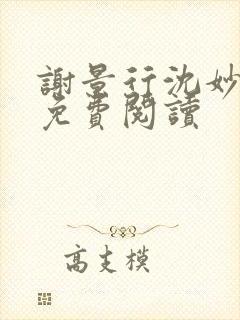 謝景行沈妙
免費閱讀
高支模